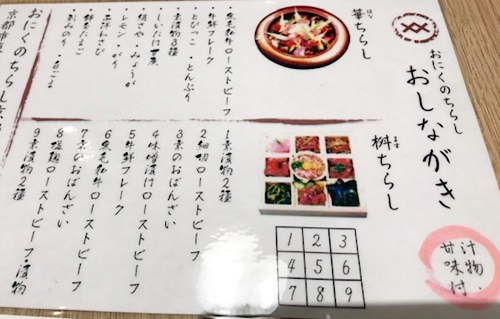 おにくのちらし
おしながき
華ちらし
はな
・魚市和牛ローストビーフ
・牛鮮フレーク
・とびっこ ・とんぶり
・京漬物3種
・しいたけ煮
・絹さや ・みょうが
・レモン ・がり
・山葵
・錦糸たまご
・刻みのり ・白ごま
桝ちらし
ます
1京漬物2種
2細切ローストビーフ
3京のおばんざい
4味噌漬けローストビーフ
5牛鮮フレーク
6魚市和牛ローストビーフ
7京のおばんざい
8塩麹ローストビーフ・漬物
9京漬物2種
1 2 3
4 5 6
7 8 9
汁物・
甘味付
おにくのちらし
京都市